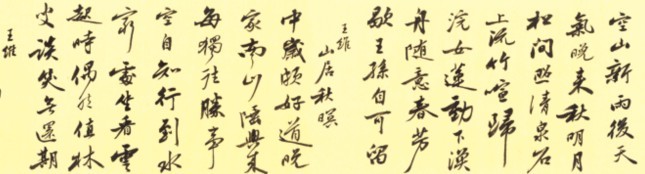 空山新雨後天
氣晚来秋明月
松间照清泉石
上流竹喧歸
浣女蓮動下漁
舟随意春芳
歇王孫自可留
王维
山居秋暝
中歲頗好道晚
家南山陲興来
每獨往勝事
空自知行到水
窮處坐看雲
起時偶然值林
叟談笑无還期
王维